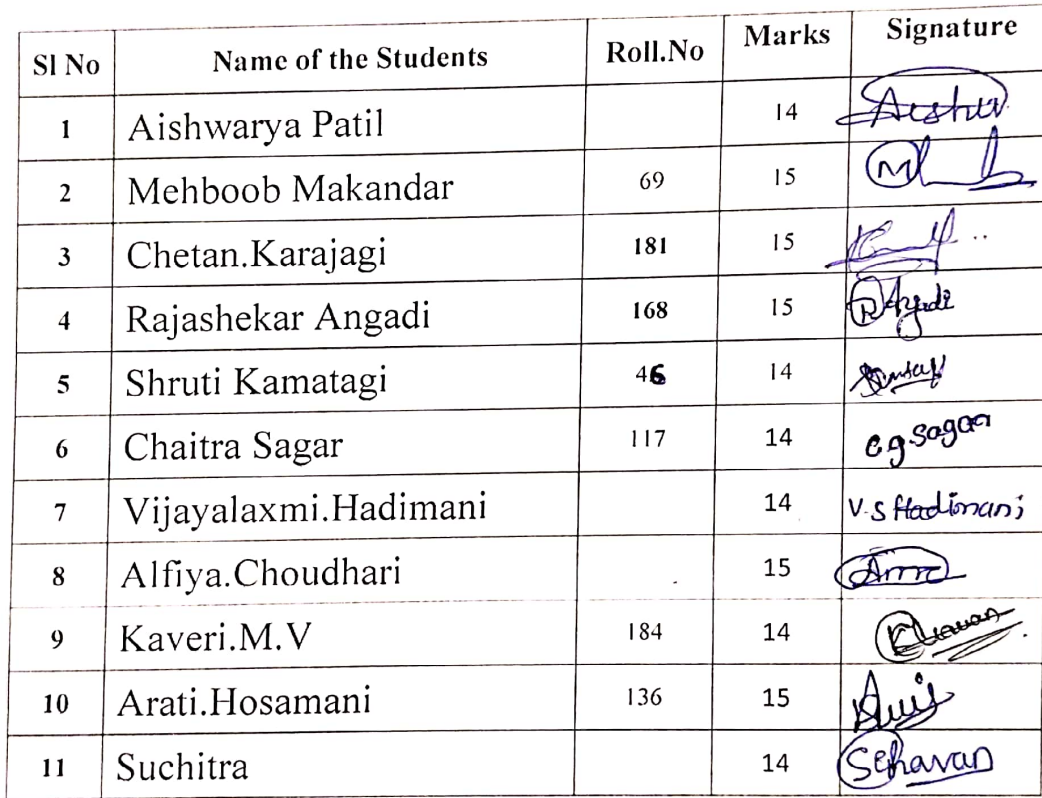 Sl No Name of the Students Roll.No Marks Signature
1 Aishwarya Patil 14
2 Mehboob Makandar 69 15
3 Chetan.Karajagi 181 15
4 Rajashekar Angadi 168 15 R Angadi
5 Shruti Kamatagi 46 14
6 Chaitra Sagar 117 14 c g sagar
7 Vijayalaxmi.Hadimani 14 V.S Hadimani
8 Alfiya.Choudhari 15
9 Kaveri.M.V 184 14
10 Arati.Hosamani 136 15
11 Suchitra 14 SChavan